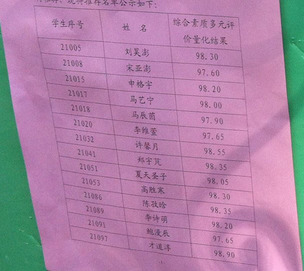 名单公示如下：
学生序号 姓 名 综合素质多元评
价量化结果
21005 刘昊澎 98.30
21008 宋亚澎 97.60
21015 申格宇 98.20
21017 马艺宁 98.00
21018 马辰茵 97.90
21020 李雅萱 97.65
21032 许馨月 98.55
21041 郑宇岚 98.35
21051 夏天圣子 98.05
21053 高胜寒 98.30
21086 陈孜晗 98.35
21089 李诗萌 98.20
21091 鲍漫辰 97.65
21097 才道淳 98.90